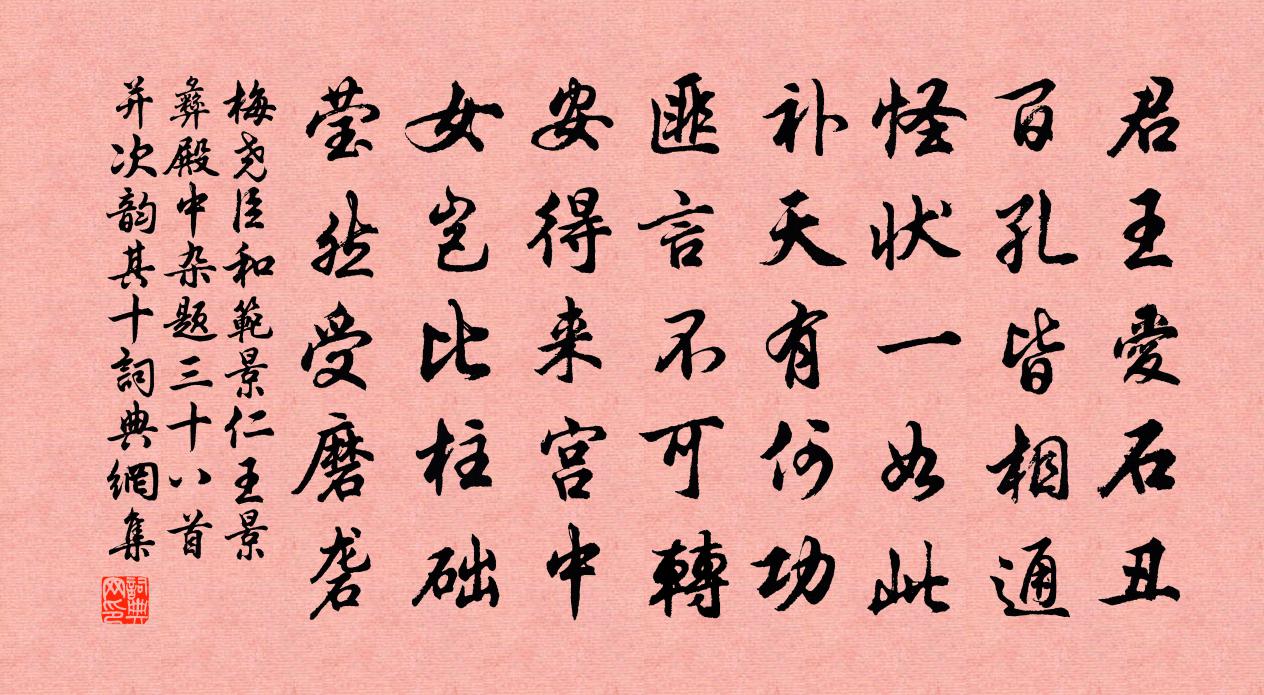 君王愛石丑
百孔皆相通
怪状一如此
补天有何功
匪言不可轉
安得来宫中
女岂比柱础
莹然受磨砻
梅尧臣和範景仁王景
彝殿中杂题三十八首
并次韵其十詞典網集
詞典网印